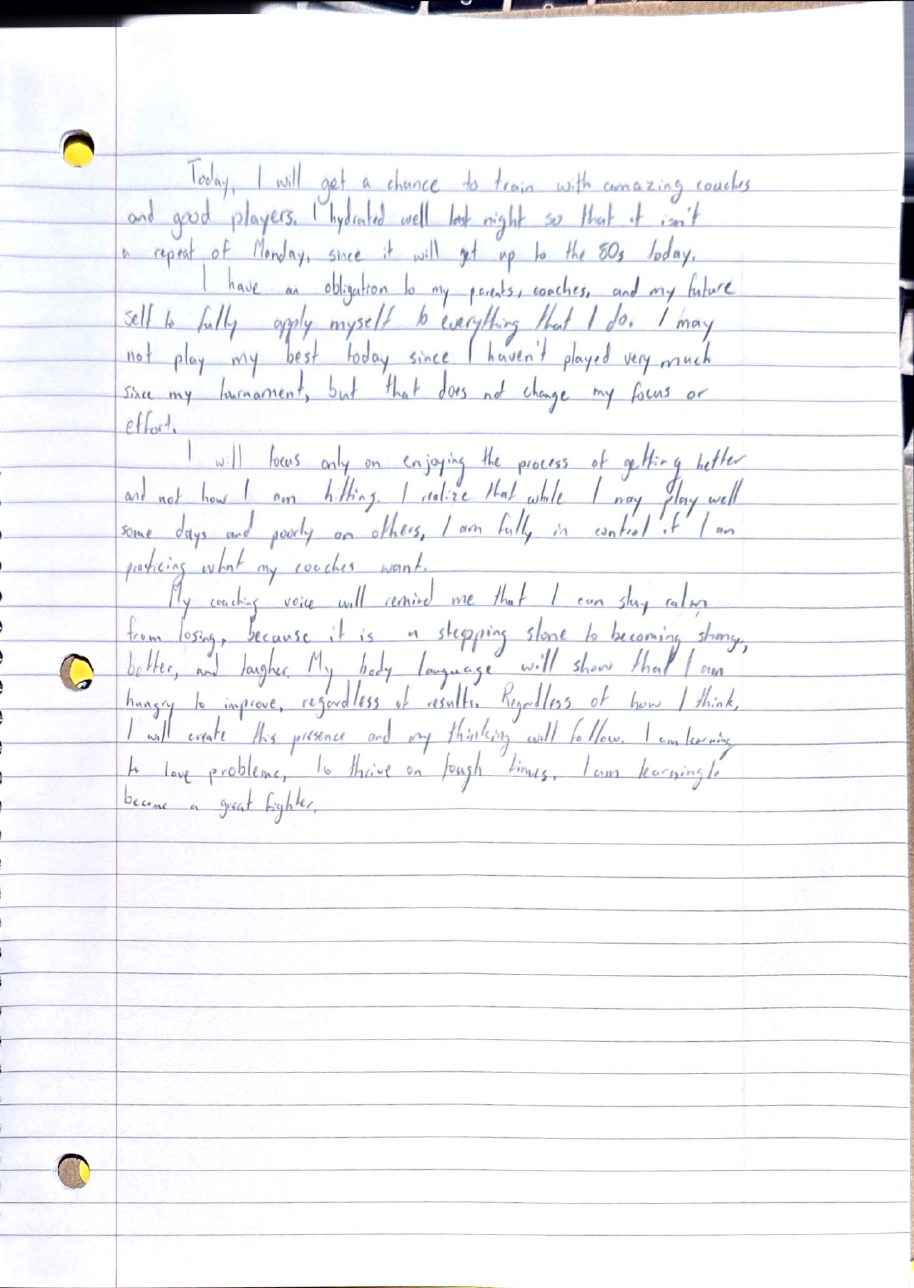 Today, I will get a chance to train with amazing coaches
and good players. I hydrated well last night so that it isn't
a repeat of Monday, since it will get up to the 80s today.
I have an obligation to my parents, coaches, and my future
self to fully apply myself to everything that I do. I may
not play my best today since I haven't played very much
since my tournament, but that does not change my focus or
effort.
I will focus only on enjoying the process of getting better
and not how I am hitting. I realize that while I may play well
some days and poorly on others, I am fully in control if I am
practicing what my coaches want.
My coaching voice will remind me that I can stay calm
from losing, because it is a stepping stone to becoming strong,
better, and tougher. My body language will show that I am
hungry to improve, regardless of results. Regardless of how I think,
I will create this presence and my thinking will follow. I am learning
to love problems, to thrive on tough times. I am learning to
become a great fighter.